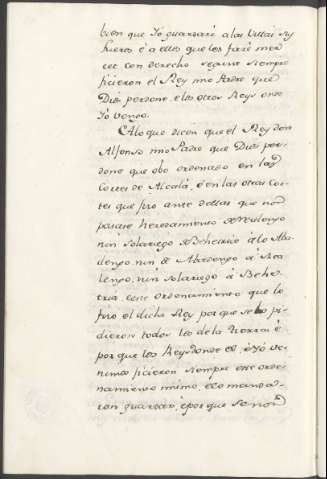 bien que Yo guardaré a las Villas sus
fueros é a ellos que les faré mer
cet con derecho segunt siempre
ficieron el Rey mio Padre que
Dios perdone, e los otros Reys onde
Yo vengo.
Ȧlo que dicen que el Rey don
Alfonso mio Padre que Dios per
done que obo ordenado en las
Cortes de Alcalá, é en las otras Cor
tes que fizo ante dellas que non
pasase heredamiento de Realengo
nin Solariego é Behetria á lo Aba
dengo, nin de Abadengo a Rea
lengo, nin solariego á Behe
tria, este ordenamiento que lo
fizo el dicho Rey porque se lo pi
dieron todos los de la tierra é
por que los Reys donde el, é Yo ve
nimos ficieron siempre este orde
namiento mismo, é lo manda
ron guardar, é por que se non